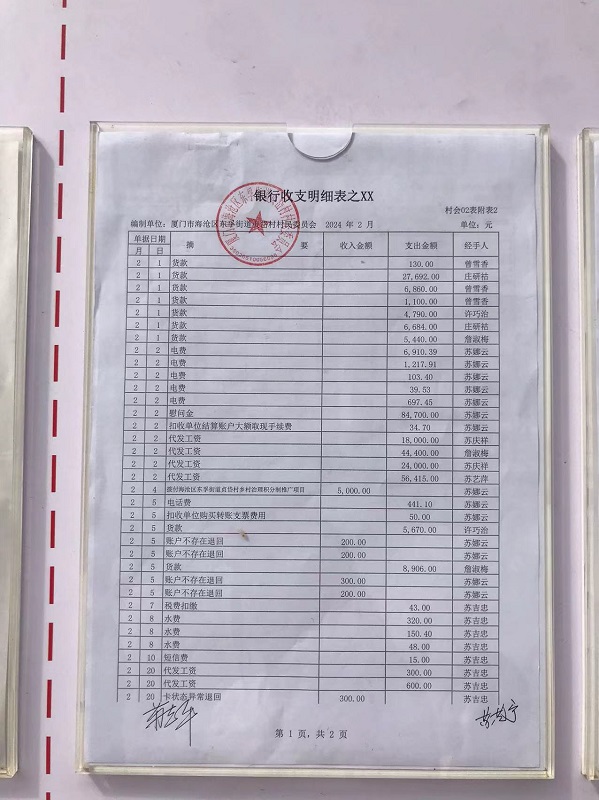 银行收支明细表之XX
村会02表附表2
编制单位：厦门市海沧区东孚街道贞岱村村民委员会 2024 年 2 月 单位：元
单据日期 摘 要 收入金额 支出金额 经手人
月 日
2 1 货款 130.00 曾雪香
2 1 货款 27,692.00 庄研祜
2 1 货款 6,860.00 曾雪香
2 1 货款 1,100.00 曾雪香
2 1 货款 4,790.00 许巧治
2 1 货款 6,684.00 庄研祜
2 1 货款 5,440.00 詹淑梅
2 2 电费 6,910.39 苏娜云
2 2 电费 1,217.91 苏娜云
2 2 电费 103.40 苏娜云
2 2 电费 39.53 苏娜云
2 2 电费 697.45 苏娜云
2 2 慰问金 84,700.00 苏娜云
2 2 扣收单位结算账户大额取现手续费 34.70 苏娜云
2 2 代发工资 18,000.00 苏庆祥
2 2 代发工资 44,400.00 詹淑梅
2 2 代发工资 24,000.00 苏庆祥
2 2 代发工资 56,415.00 苏艺萍
2 4 拨付海沧区东孚街道贞岱村乡村治理积分制推广项目 5,000.00 苏娜云
2 5 电话费 441.10 苏娜云
2 5 扣收单位购买转账支票费用 50.00 苏娜云
2 5 货款 5,670.00 许巧治
2 5 账户不存在退回 200.00 苏娜云
2 5 账户不存在退回 200.00 苏娜云
2 5 货款 8,906.00 詹淑梅
2 5 账户不存在退回 300.00 苏娜云
2 5 账户不存在退回 200.00 苏娜云
2 7 税费扣缴 43.00 苏吉忠
2 8 水费 320.00 苏吉忠
2 8 水费 150.40 苏吉忠
2 8 水费 48.00 苏吉忠
2 10 短信费 15.00 苏吉忠
2 20 代发工资 300.00 苏吉忠
2 20 代发工资 600.00 苏吉忠
2 20 卡状态异常退回 300.00 苏吉忠
第 1 页，共 2 页